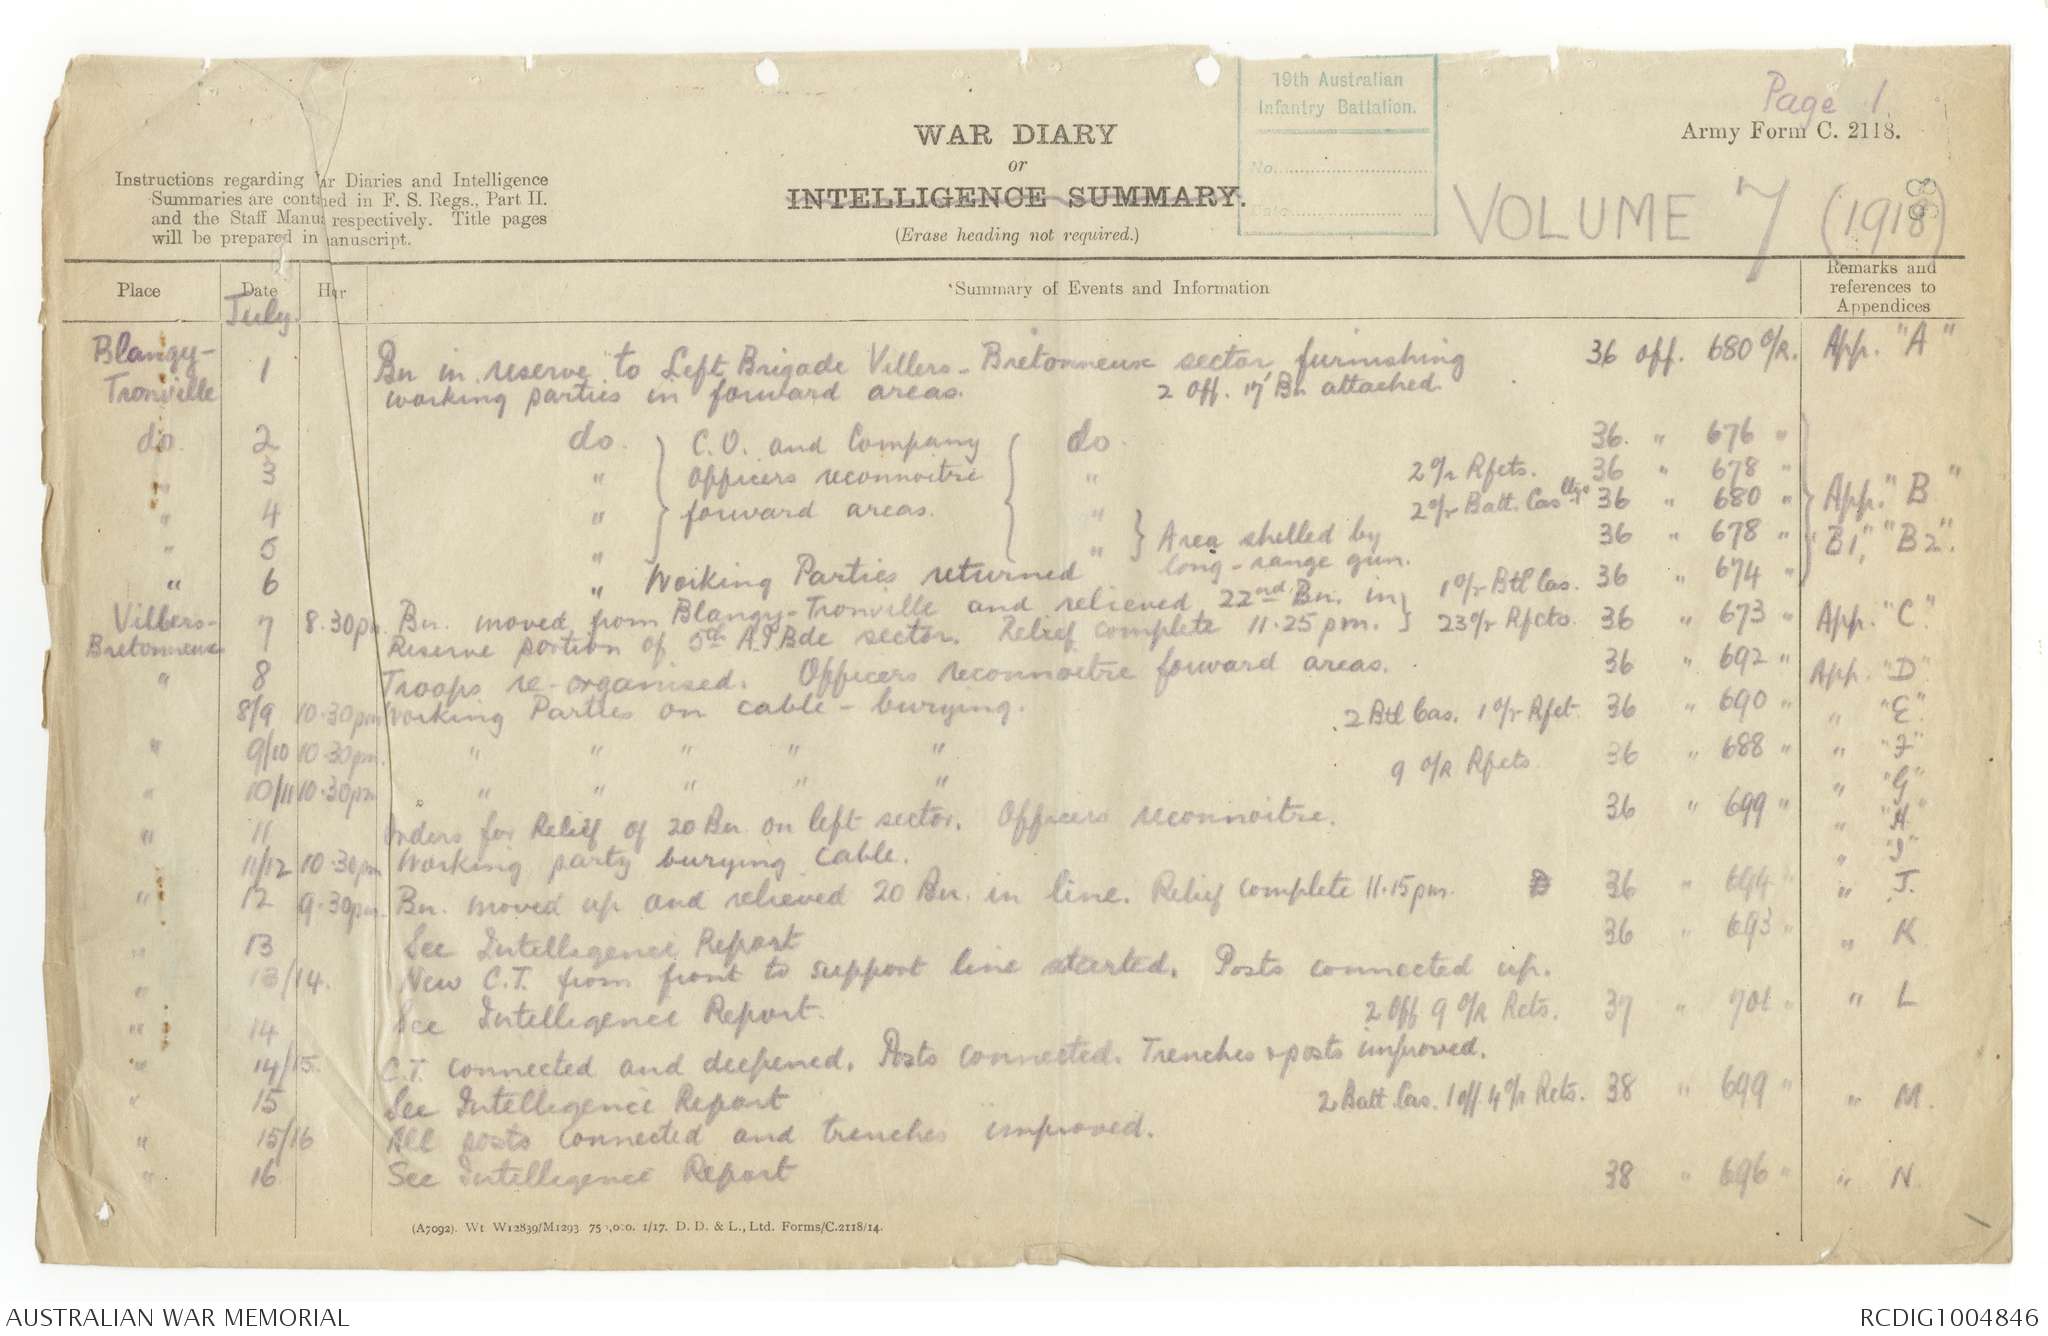 Page 1.
19th Australian
Infantry Battalion.
No.
Date
Army Form C. 2118.
WAR DIARY
or
INTELLIGENCE SUMMARY.
(Erase heading not required.)
VOLUME 7 (1918)
Instructions regarding War Diaries and Intelligence
Summaries are contained in F. S. Regs., Part II.
and the Staff Manual respectively. Title pages
will be prepared in manuscript.
Place Date Hour Summary of Events and Information Remarks and references to Appendices
July
Blangy-Tronville 1 Bn in reserve to Left Brigade Villers-Bretonneux sector furnishing 36 Off. 680 O/R. App. "A"
working parties in forward areas. 2 Off. 17 Bn attached.
do. 2 do. } C.O. and Company { do. 36. " 676 "
" 3 " } officers reconnoitre { " 2 o/r Rfcts. 36 " 678 "
" 4 " } forward areas. { " 2 o/r Batt. Cas 36 " 680 " App. "B"
" 5 " " } Area shelled by 36 " 678 " "B1," "B2".
long-range gun.
" 6 " Working Parties returned 1 o/r Btl Cas. 36 " 674 "
Villers-Bretonneux 7 8.30pm Bn. moved from Blangy-Tronville and relieved 22nd Bn. in } 23 o/r Rfcts. 36 " 673 " App. "C".
Reserve portion of 5th A.I Bde sector. Relief complete 11.25 pm.
" 8 Troops re-organised. Officers reconnoitre forward areas. 36 " 692 " App. "D".
8/9 10.30pm Working Parties on cable-burying. 2 Btl Cas. 1 o/r Rfct. 36 " 690 " " "E".
" 9/10 10.30pm. " " " " " 9 O/R Rfcts 36 " 688 " " "F"
" 10/11 10.30pm " " " " " " "G"
" 11 Orders for Relief of 20 Bn. on left sector. Officers reconnoitre. 36 " 699 " " "H"
11/12 10.30pm Working party burying cable. " "I"
" 12 9.30pm. Bn. moved up and relieved 20 Bn. in line. Relief complete 11.15 pm. 36 " 694 " " J.
" 13 See Intelligence Report 36 " 693 " " K
" 13/14. New C.T. from front to support line started. Posts connected up.
" 14 See Intelligence Report. 2 Off 9 O/R Rcts. 37 " 701 " " L
" 14/15. C.T. connected and deepened. Posts connected. Trenches & posts improved.
" 15 See Intelligence Report 2 Batt. Cas. 1 off. 4 o/r Rcts. 38 " 699 " " M.
" 15/16 All posts connected and trenches improved.
" 16 See Intelligence Report 38 " 696 " " N.
(A7092). Wt W12839/M1293 75 ,0 0. 1/17. D. D. & L., Ltd. Forms/C.2118/14.
AUSTRALIAN WAR MEMORIAL
RCDIG1004846